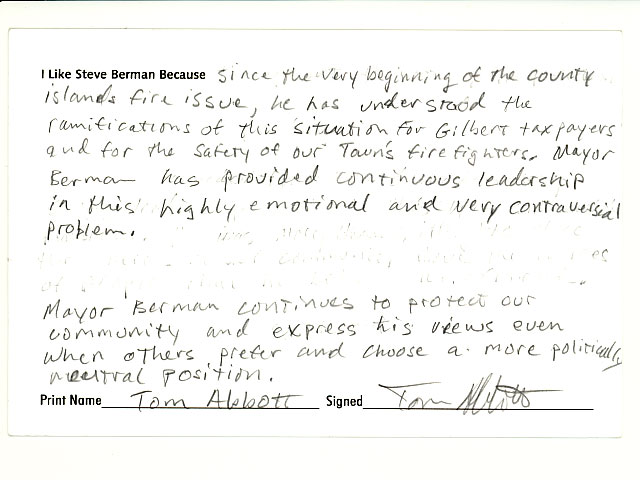 I Like Steve Berman Because since the very beginning of the county
islands fire issue, he has understood the
ramifications of this situation for Gilbert taxpayers
and for the safety of our Town's firefighters. Mayor
Berman has provided continuous leadership
in this highly emotional and very contraversial
problem.
Mayor Berman continues to protect our
community and express his views even
when others prefer and choose a more politically
neutral position.
Print Name Tom Abbott Signed Tom Abbott